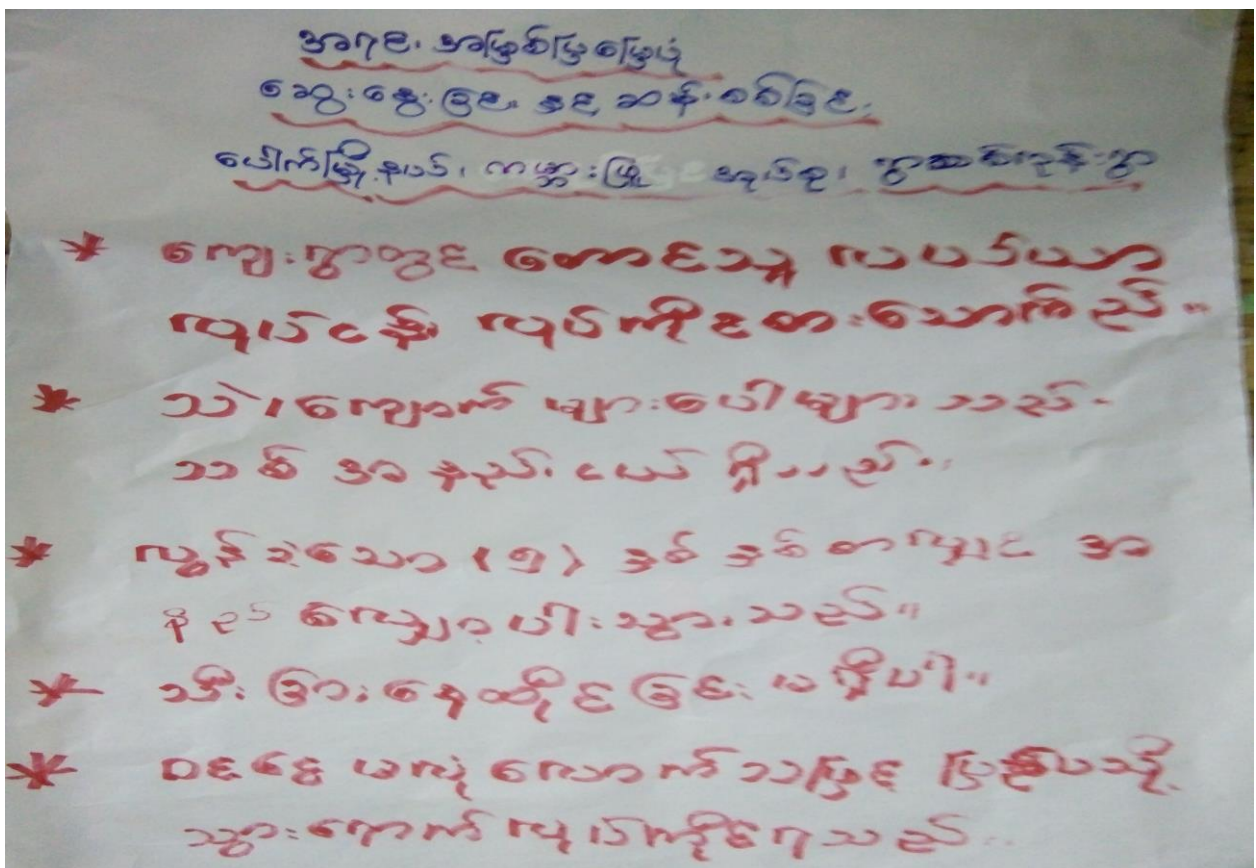 အရင်း အမြစ်ပြမြေပုံ
ဆွေးနွေးခြင်း နှင့် ဆန်းစစ်ခြင်း
ပေါက်မြို့နယ်၊ ကမ္ဘားဖြူ အုပ်စု၊ ရွာ
* ကျေးရွာတွင် တောင်သူ လယ်ယာ
လုပ်ငန်း လုပ်ကိုင်စားသောက်သည်။
* သဲ၊ကျောက် များပေါများသည်။
သစ် အနည်းငယ် ရှိသည်။
* လွန်ခဲ့သော (၅) နှစ် နှစ် စာလျှင် အ
နည် လျော့ပါးသွားသည်။
* သီးခြားနေထိုင်ခြင်း မရှိပါ။
* ဝင်ငွေ မလုံလောက်သဖြင့် ပြည်ပသို့
သွားရောက် လုပ်ကိုင်ရသည်။